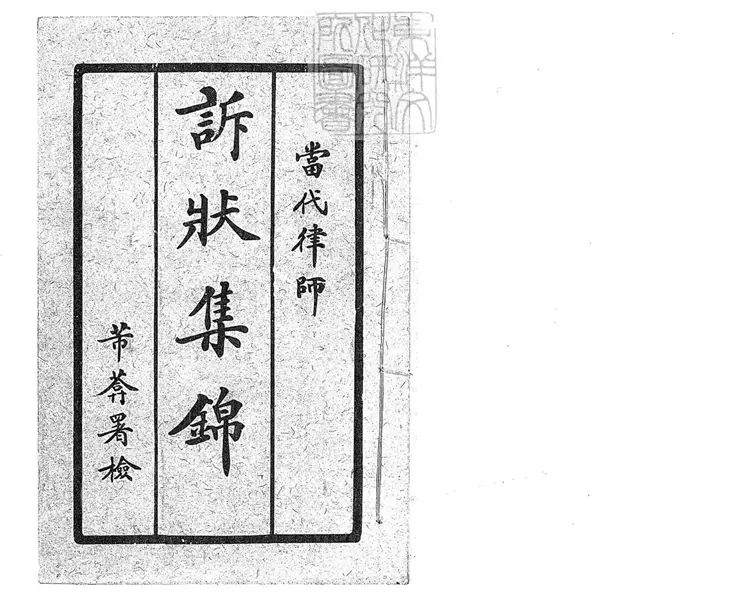 當代律師
訴狀集錦
署檢